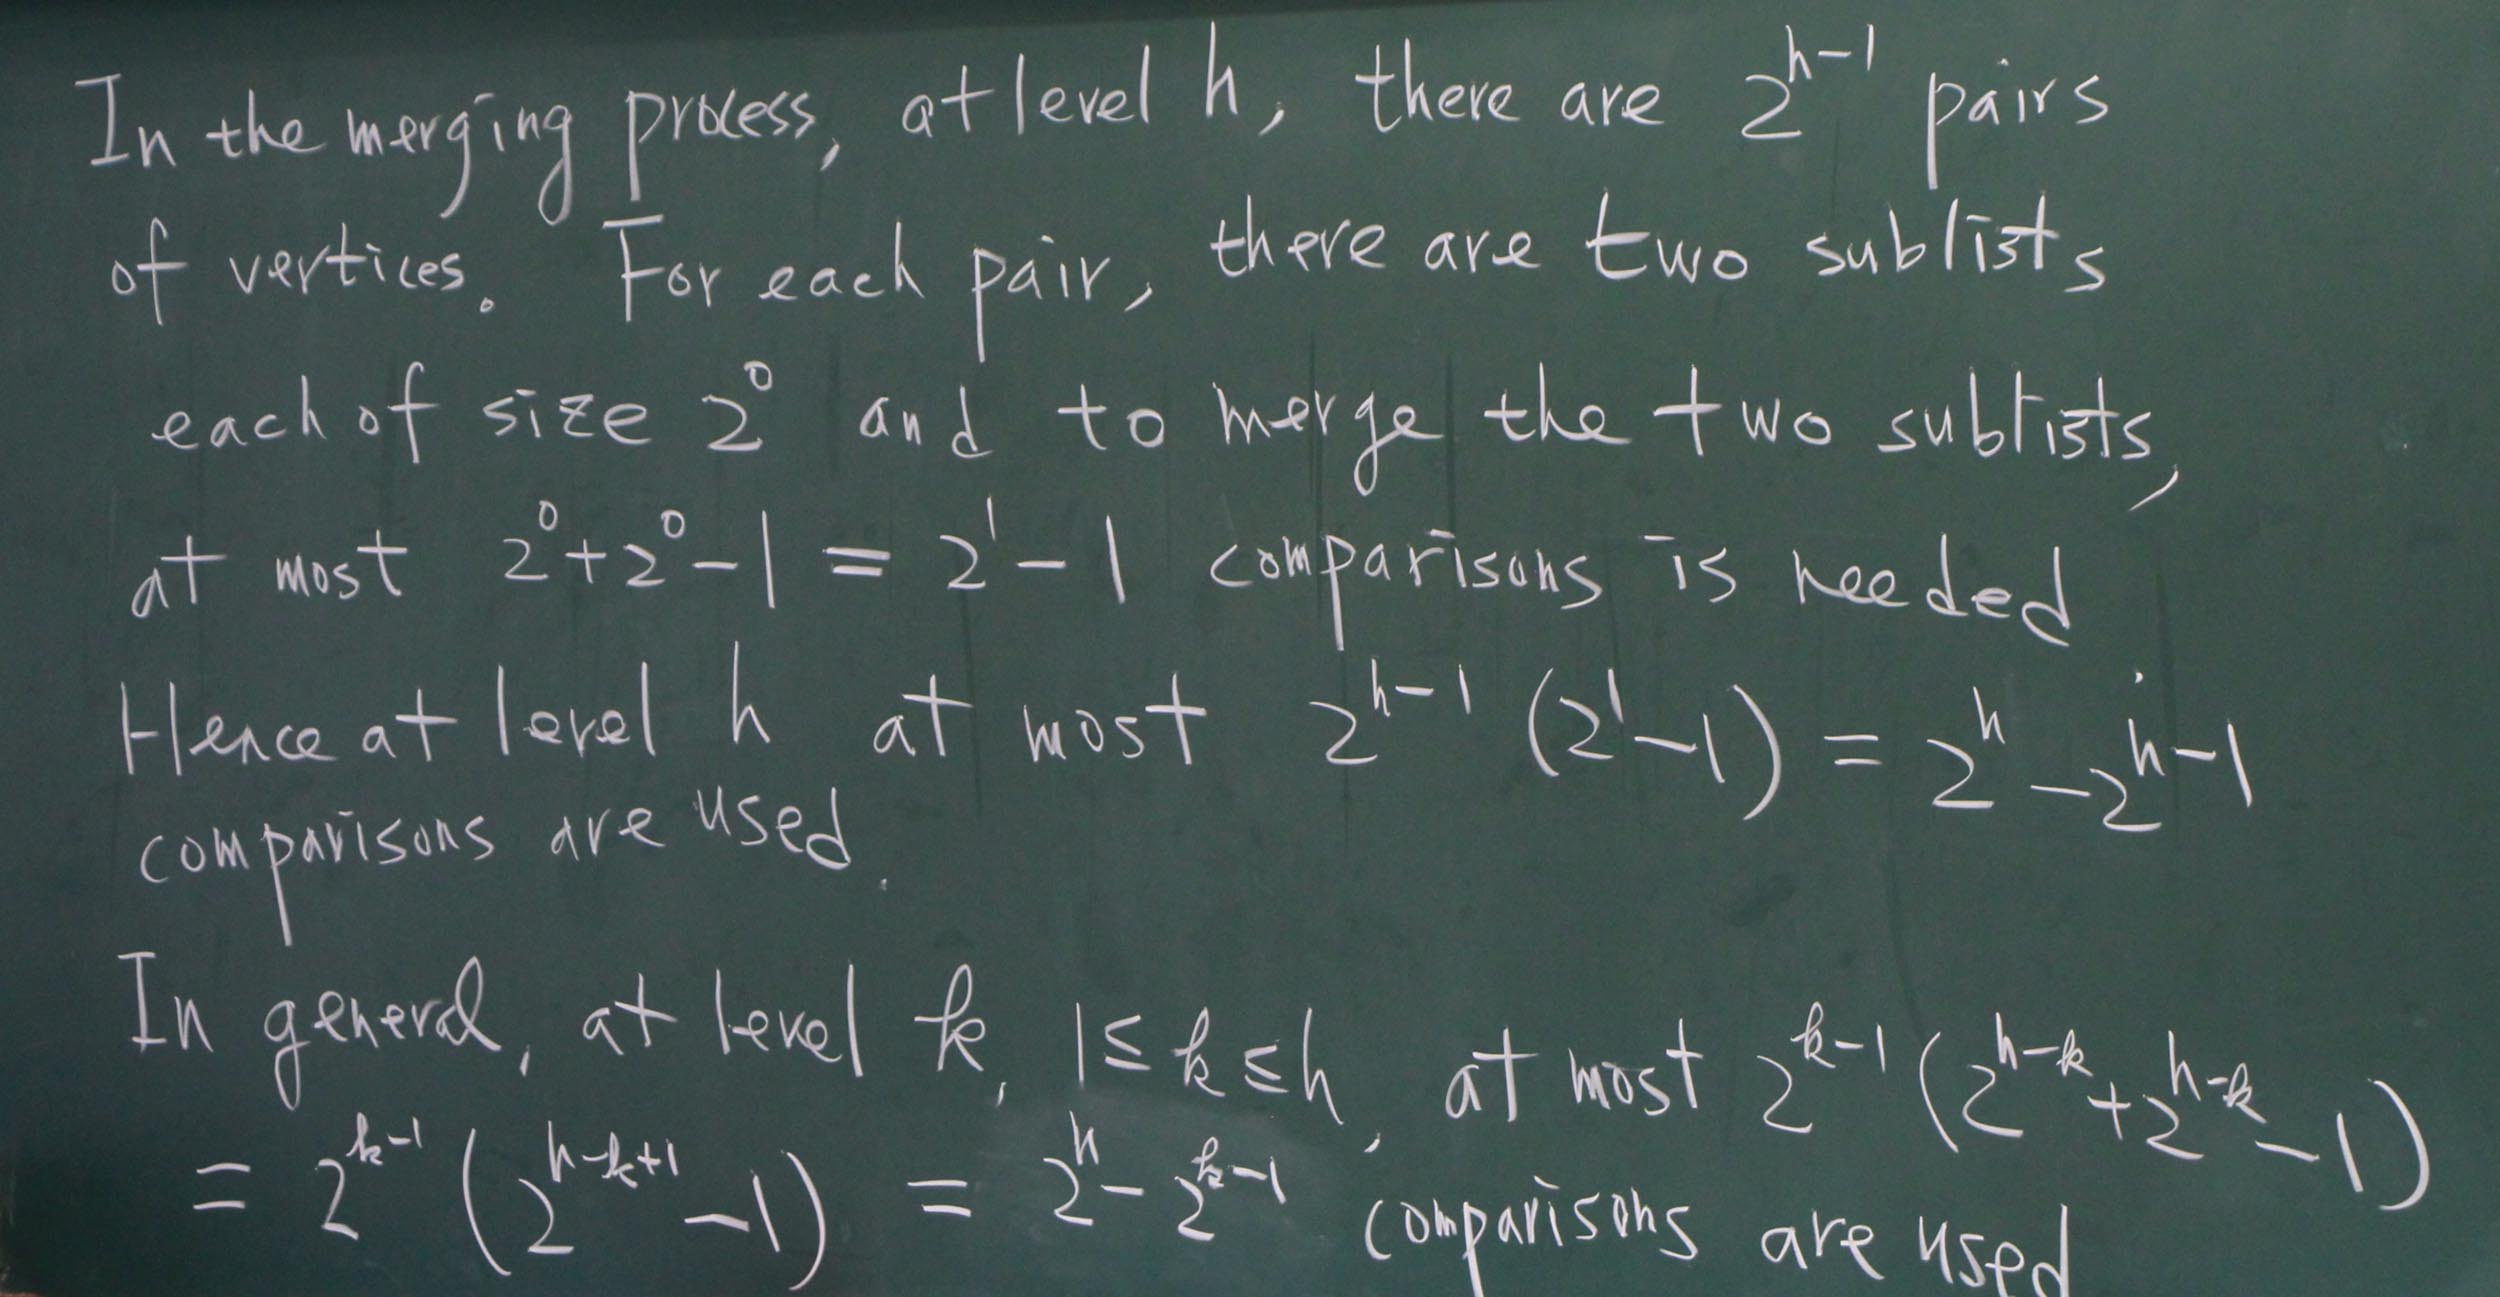 In the merging process, at level h, there are 2^{h-1} pairs
of vertices. For each pair, there are two sublists
each of size 2^0 and to merge the two sublists,
at most 2^0+2^0-1 = 2^1-1 comparisons is needed
Hence at level h at most 2^{h-1} (2^1-1) = 2^h-2^{h-1}
comparisons are used.
In general, at level k, 1≤k≤h, at most 2^{k-1} (2^{h-k}+2^{h-k}-1)
= 2^{k-1} (2^{h-k+1}-1) = 2^h-2^{k-1} comparisons are used